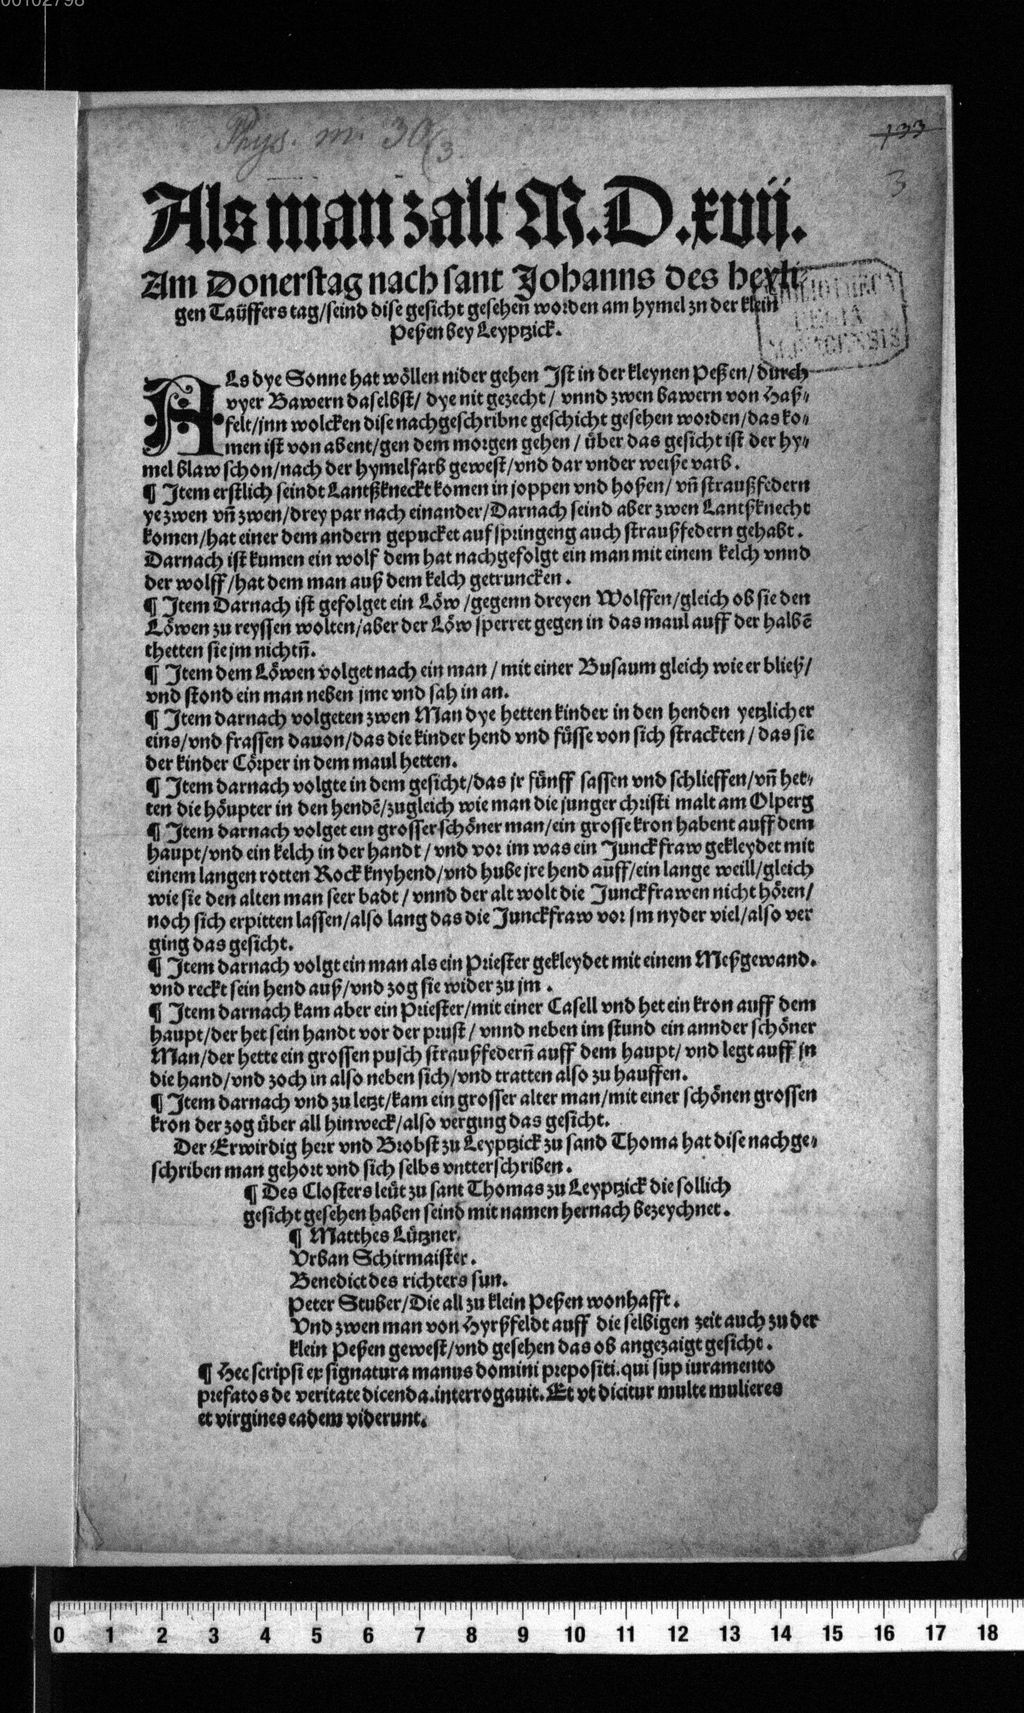 00102798
Phys. m. 30/3
133
3
Als man zalt M.D.xvij.
Am Donerstag nach sant Johanns des heyli
gen Taüffers tag/seind dise gesicht gesehen worden am hymel zu der klein
Peßen bey Leyptzick.
BIBLIOTHECA
REGIA
MONACENSIS
ALs dye Sonne hat wöllen nider gehen Ist in der kleynen Peßen/ durch
vyer Bawern daselbst/ dye nit gezecht/ vnnd zwen bawern von Haß-
felt/jnn wolcken dise nachgeschribne geschicht gesehen worden/das ko-
men ist von abent/gen dem morgen gehen/ über das gesicht ist der hy-
mel blaw schon/nach der hymelfarb gewest/vnd dar vnder weiße varb.
¶ Item erstlich seindt Lantßkneckt komen in joppen vnd hoßen/ vñ straußfedern
ye zwen vñ zwen/drey par nach einander/Darnach seind aber zwen Lantßknecht
komen/hat einer dem andern gepucket auf springeng auch straußfedern gehabt.
Darnach ist kumen ein wolf dem hat nachgefolgt ein man mit einem kelch vnnd
der wolff/hat dem man auß dem kelch getruncken.
¶ Item Darnach ist gefolget ein Löw/gegenn dreyen Wolffen/gleich ob sie den
Löwen zu reyssen wolten/aber der Löw sperret gegen in das maul auff der halbẽ
thetten sie jm nichtñ.
¶ Item dem Löwen volget nach ein man/ mit einer Busaum gleich wie er bließ/
vnd stond ein man neben jme vnd sah in an.
¶ Item darnach volgeten zwen Man dye hetten kinder in den henden yetzlicher
eins/vnd frassen dauon/das die kinder hend vnd füsse von sich strackten/ das sie
der kinder Cörper in dem maul hetten.
¶ Item darnach volgte in dem gesicht/das jr fünff sassen vnd schlieffen/vñ het-
ten die höupter in den hendẽ/zugleich wie man die junger christi malt am Olperg
¶ Item darnach volget ein grosser schöner man/ein grosse kron habent auff dem
haupt/vnd ein kelch in der handt/ vnd vor im was ein Junckfraw gekleydet mit
einem langen rotten Rock knyhend/vnd hube jre hend auff/ein lange weill/gleich
wie sie den alten man seer badt/ vnnd der alt wolt die Junckfrawen nicht hören/
noch sich erpitten lassen/also lang das die Junckfraw vor jm nyder viel/also ver
ging das gesicht.
¶ Item darnach volgt ein man als ein Priester gekleydet mit einem Meßgewand.
vnd reckt sein hend auß/vnd zog sie wider zu jm.
¶ Item darnach kam aber ein Priester/mit einer Casell vnd het ein kron auff dem
haupt/der het sein handt vor der prust/ vnnd neben im stund ein annder schöner
Man/der hette ein grossen pusch straußfederñ auff dem haupt/ vnd legt auff jn
die hand/vnd zoch in also neben sich/vnd tratten also zu hauffen.
¶ Item darnach vnd zu letzt/kam ein grosser alter man/mit einer schönen grossen
kron der zog über all hinweck/also verging das gesicht.
Der Erwirdig herr vnd Brobst zu Leyptzick zu sand Thoma hat dise nachge-
schriben man gehort vnd sich selbs vntterschriben.
¶ Des Closters leüt zu sant Thomas zu Leyptzick die sollich
gesicht gesehen haben seind mit namen hernach bezeychnet.
¶ Matthes Lützner.
Vrban Schirmaister.
Benedict des richters sun.
Peter Stuber/Die all zu klein Peßen wonhafft.
Vnd zwen man von Hyrßfeldt auff die selbigen zeit auch zu der
klein Peßen gewest/vnd gesehen das ob angezaigt gesicht.
¶ Hec scripsi ex signatura manus domini prepositi.qui sup iuramento
prefatos de veritate dicenda.interrogauit.Et vt dicitur multe mulieres
et virgines eadem viderunt.
0 1 2 3 4 5 6 7 8 9 10 11 12 13 14 15 16 17 18